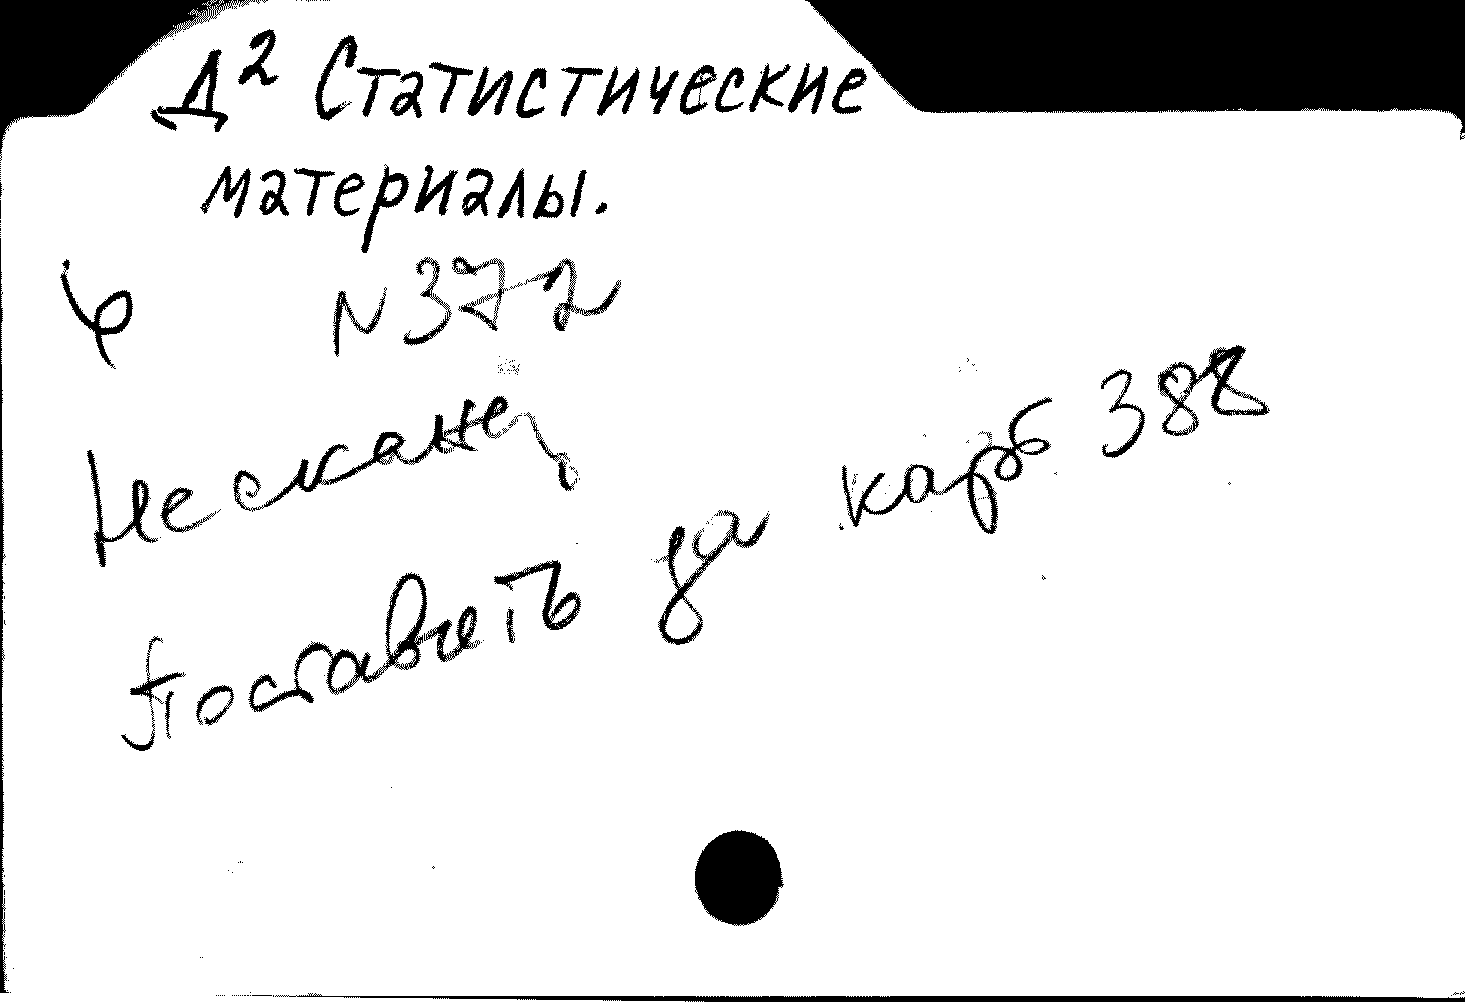 Д² Статистические
материалы.
N 372
Не скане
Поставить за карб 388